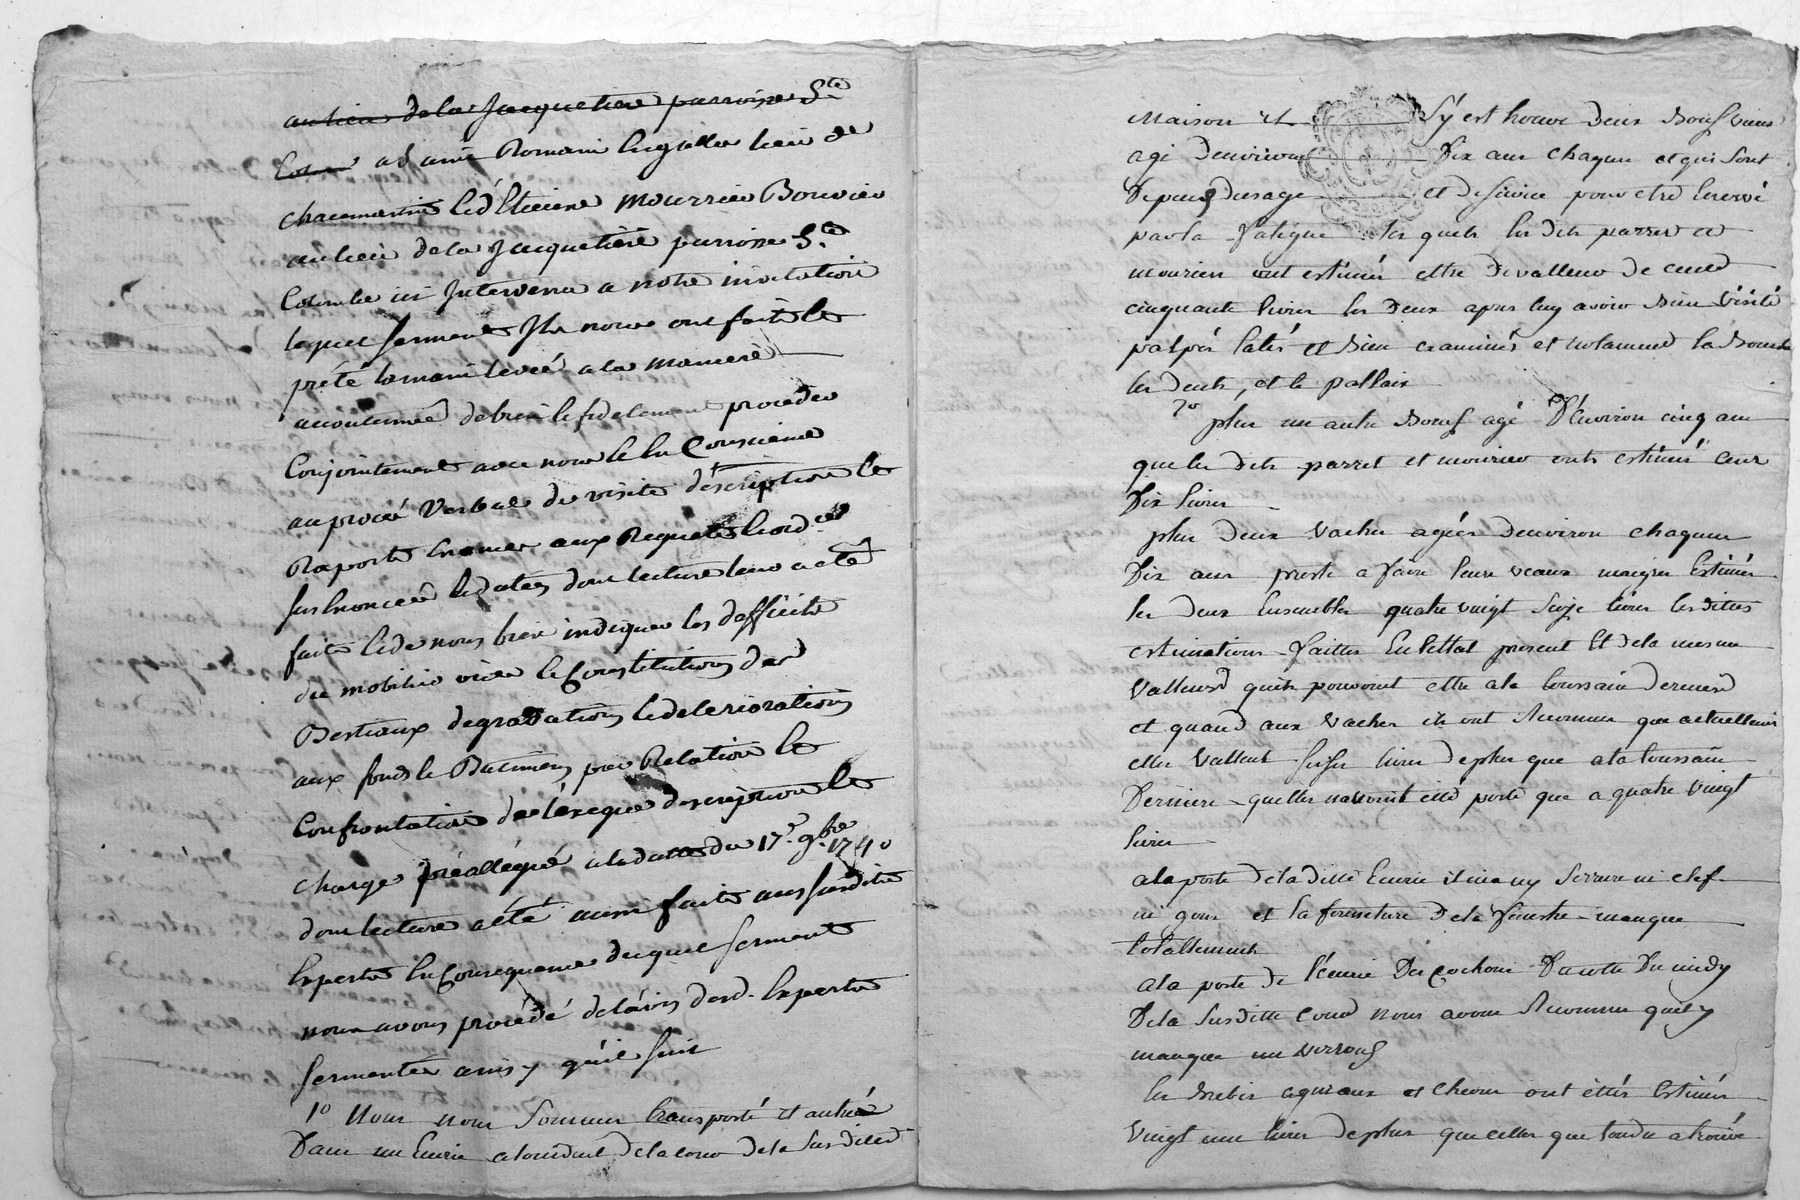 au lieu de la Jacquetiere parroisse Ste
Romain lieu de
Etienne Mourrier Bouvier
au lieu de la Jacquetière parroisse Ste
Colombe ici Intervenu a notre invitation
lequel serment Ils nous ont fait et
prété la main levée a la maniere
accoutumée de bien et fidelement proceder
Conjointement avec nous et en Conscience
au procés Verbal de visite déscription et
Raport Enoncé aux Requete et ord.ce
sus Enoncée et datée dont lecture leur a eté
faite et de nous bien indiquer les defficits
du mobilier vice et Constitution des
Bestiaux degradations et deteriorations
aux fonds et Batimens par Relation et
Confrontation de description et
charge préallegué a la datte du 17e 9bre 1740
dont lecture a été aussi faite aux susdits
Experts En Consequence duquel serment
nous avons procédé de l'avis desd. Experts
sermentés ainsy qu'il suit
1o Nous nous sommes transporté et entré
Dans un Ecurie de la cour de la susditte
Maison et S'y est trouvé deux Boeufs vieux
agé denviron Dix ans chaqun et qui sont
Depeu dusage et de service pour etre
par la fatigue les quels les dits parret et
mourier ont estimés ettre de valleur de cent
cinquante livres les deux apres les avoir bien visité
palpés et bien examinés et notamment la Bouche
les dents, et le pallais
2o plus un autre Boeuf agé D'Environ cinq ans
que les dits parret et mourier ont estimé cent
Dix livres
plus deux vaches agées denviron chaqune
Dix ans preste a faire leurs veaux maigres Estimés
les deux Ensembles quatre vingt seize livres les dittes
estimations faittes En l'Ettat present Et de la mesme
valleurs quels pouvoint ettre a la toussain derniere
et quand aux vaches ils ont Reconnu que actuellement
elles vallent seize livres de plus que a la toussain
Derniere quelles n'auroint été porté que a quatre vingt
livres
a la porte de la ditte Ecurie il n'a ny serrure ni clef
ni gons et la fermeture de la fenestre manque
totallement
a la porte de l'écurie Des cochons Du cotté Du midy
De la susditte cour nous avons Reconnu quil y
manque un verrouf
les Brebis agneaux et chevres ont ettés Estimés
vingt une livres de plus que celles que a trouvé